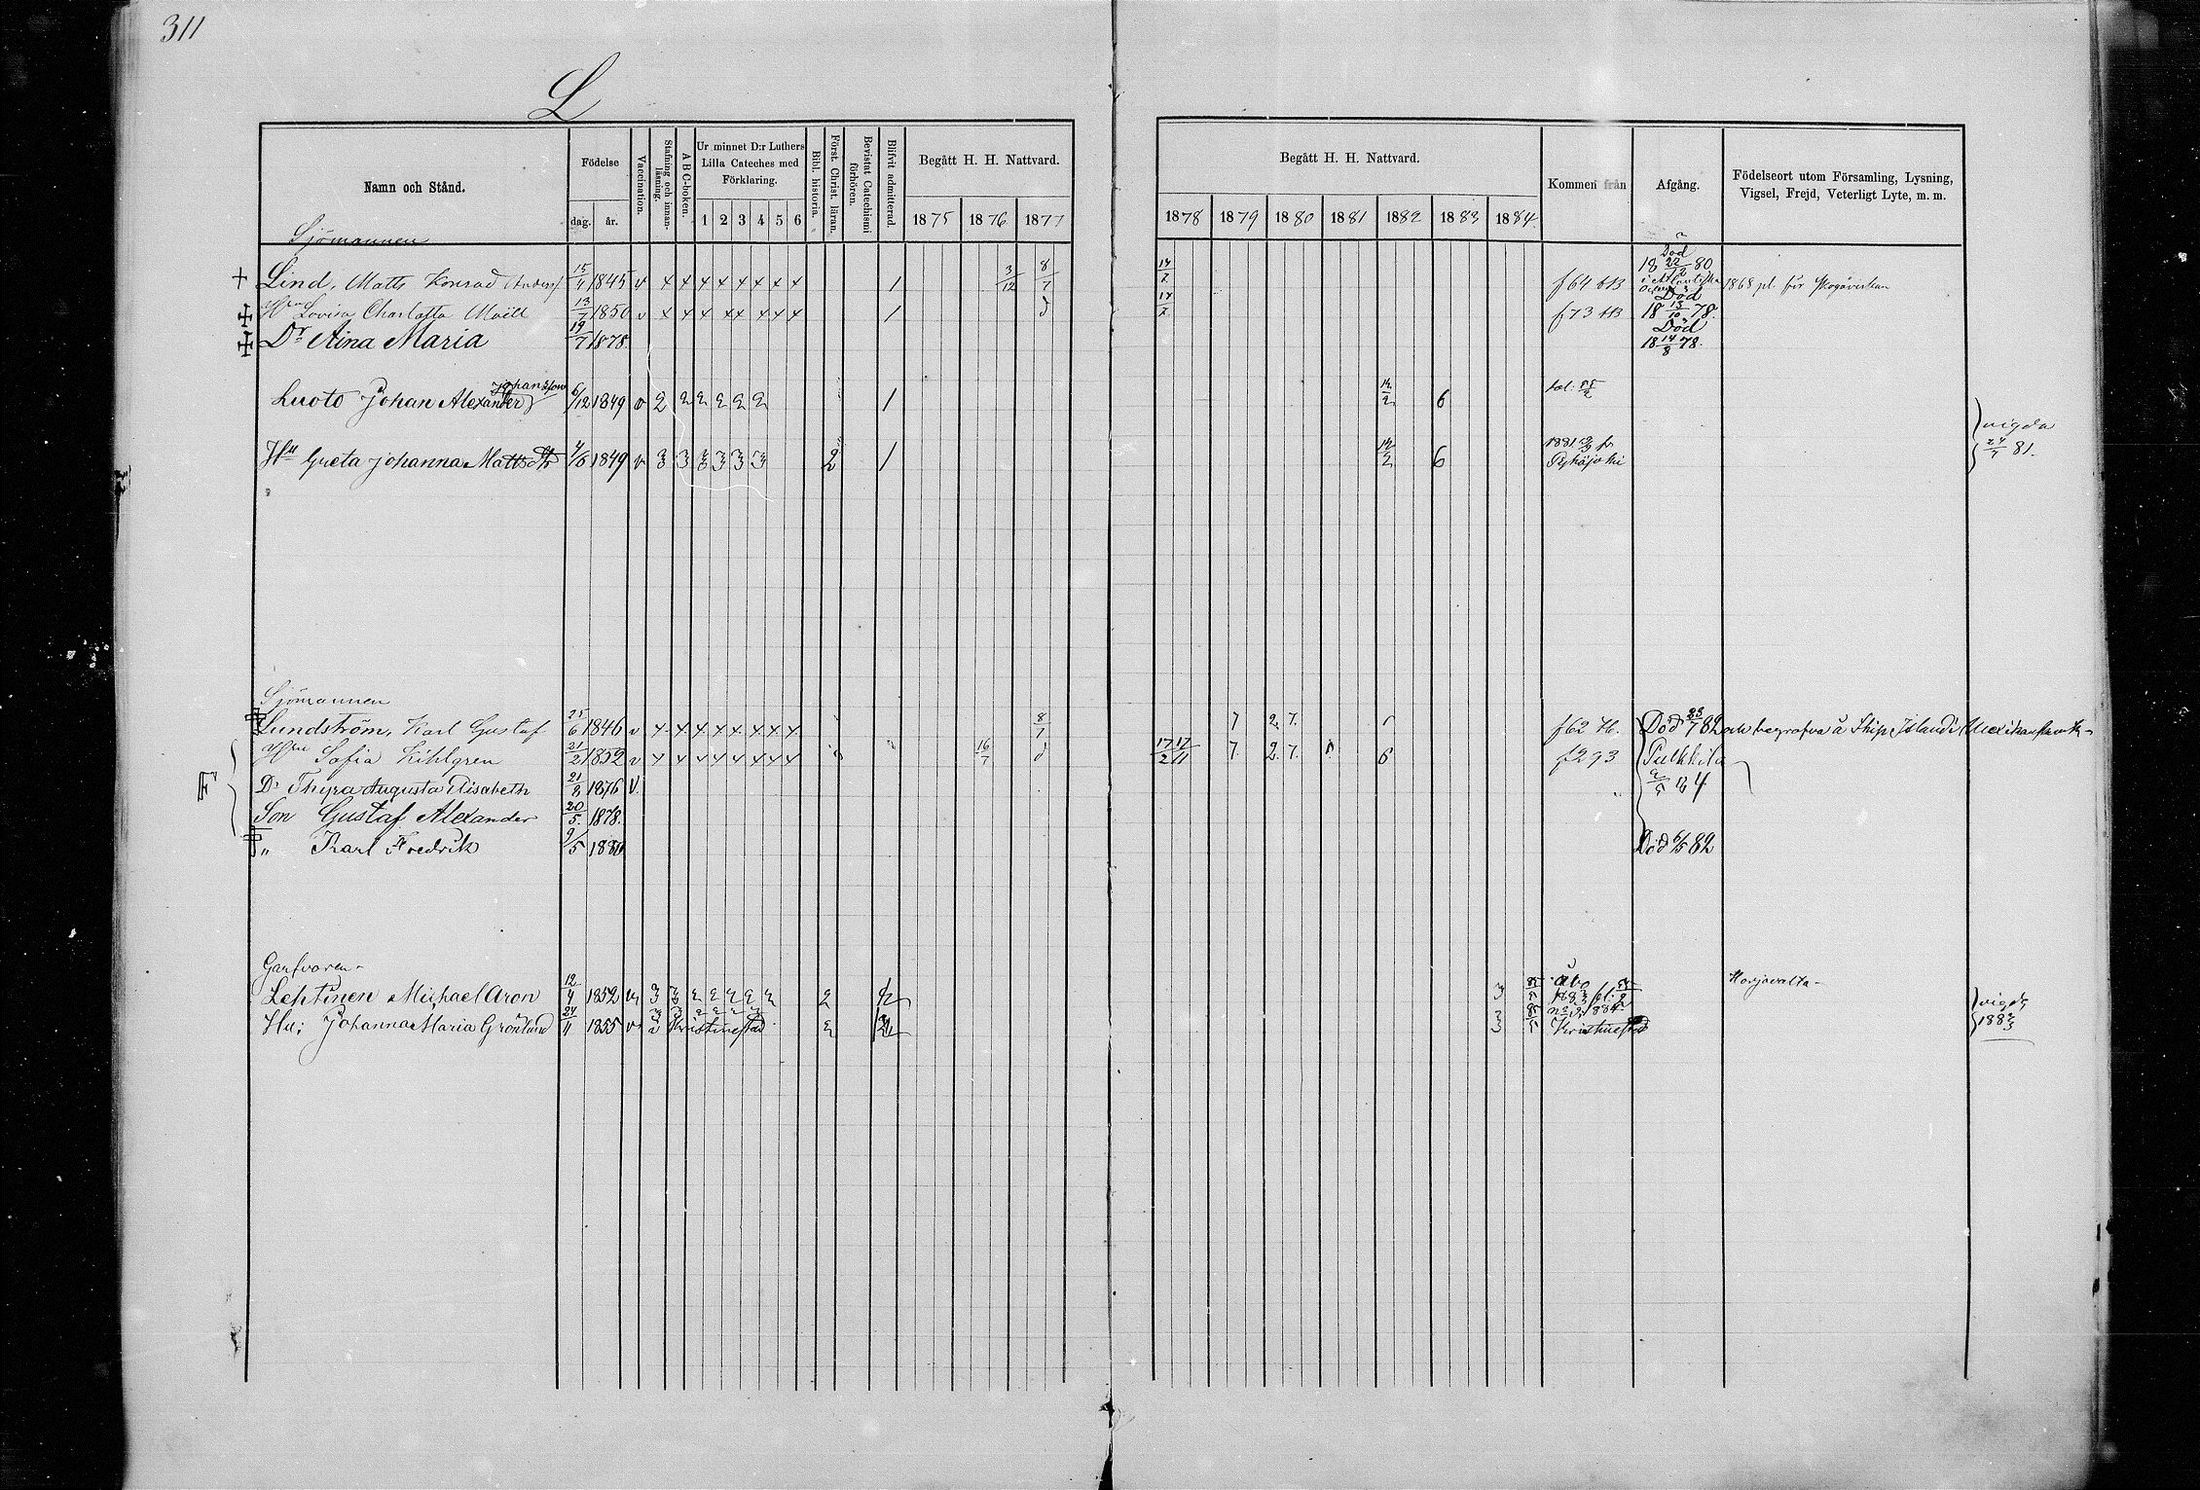 311
L
Namn och Stånd.
Födelse
dag. år.
Vaccination.
Stafning och innanläsning.
A B C-boken.
Ur minnet D:r Luthers Lilla Cateches med Förklaring.
1 2 3 4 5 6
Bibl. historia.
Först. Christ. läran.
Bevistat Catechismi förhören.
Blifvit admitterad.
Begått H. H. Nattvard.
1875 1876 1877
Begått H. H. Nattvard.
1878 1879 1880 1881 1882 1883 1884.
Kommen från
Afgång.
Födelseort utom Församling, Lysning, Vigsel, Frejd, Veterligt Lyte, m. m.
Sjömannen
Lind, Matts Konrad 15/4 1845 v x x x x x x x x 1 3/12 8/7 14/7 f 64 Död 18 22/12 80 1868 pl. för
Hun Lovisa Charlotta 13/7 1850 v x x x x x x x x 1 14/7 f 73 Död 18 13/10 78.
Dr Aina Maria 19/7 1878. Död 18 14/8 78.
Luoto Johan Alexander Johansson 6/12 1849 v 2 2 2 2 2 2 1 14/2 6
Hu Greta Johanna Mattsdtr 1849 v 3 3 3 3 3 3 2 1 14/2 6 1881 Pyhäjoki
vigda 24/7 81.
Sjömannen
Lundström, Karl Gustaf 25/6 1846 v x x x x x x x x 8/7 7 2. 7. f 62 Död 23/7 82 och begrafven å Ship Island i
Hun Sofia Kihlgren 21/2 1852 v x x x x x x x x 16/7 17/2 17/11 7. 2. 7. 6 f 293 Pulkkila
F Dr Thyra Augusta Elisabeth 21/8 1876 V. 84
Son Gustaf Alexander 20/5. 1878.
„ Karl Fredrik 9/5 1880 Död 6/5 82
Garfvaren
Lehtinen Michael Aron 12/4 1852 v 3 3 2 2 2 2 2 2 3 Åbo Harjavalta
Hu; Johanna Maria Grönlund 24/4 1855 v Kristinestad 2 3 1884 Kristinestad
vigda 1882